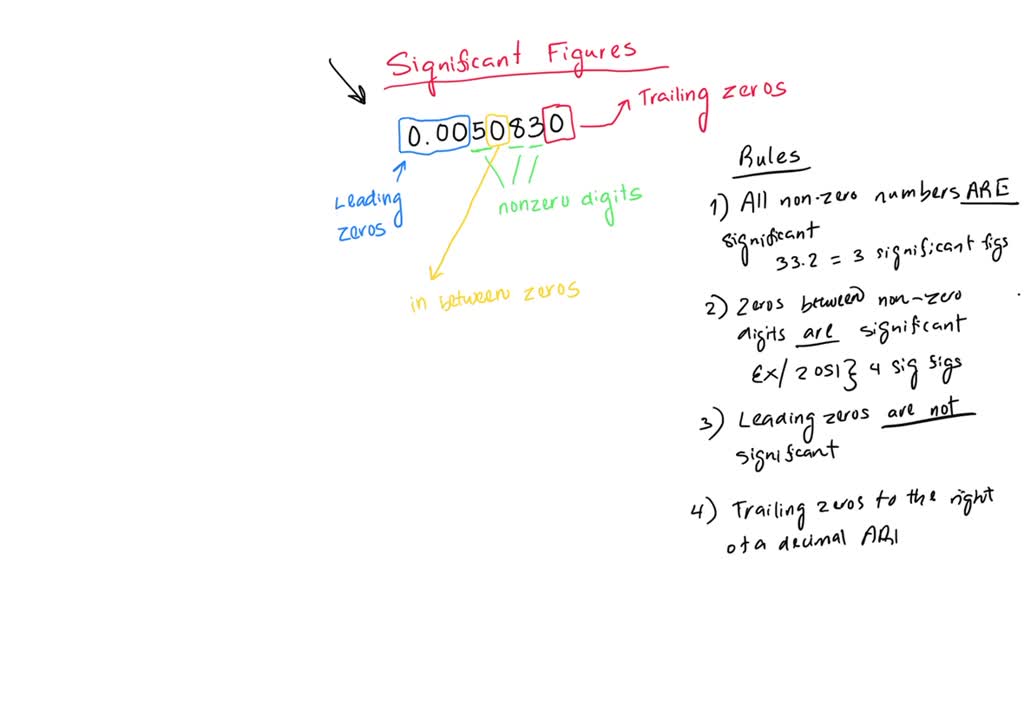 Significant Figures
0.0050830
Trailing zeros
Leading
zeros
nonzero digits
in between zeros
Rules
1) All non-zero numbers ARE
significant
33.2 = 3 significant figs
2) Zeros between non-zero
digits are significant
Ex/ 2051} 4 sig figs
3) Leading zeros are not
significant
4) Trailing zeros to the right
of a decimal